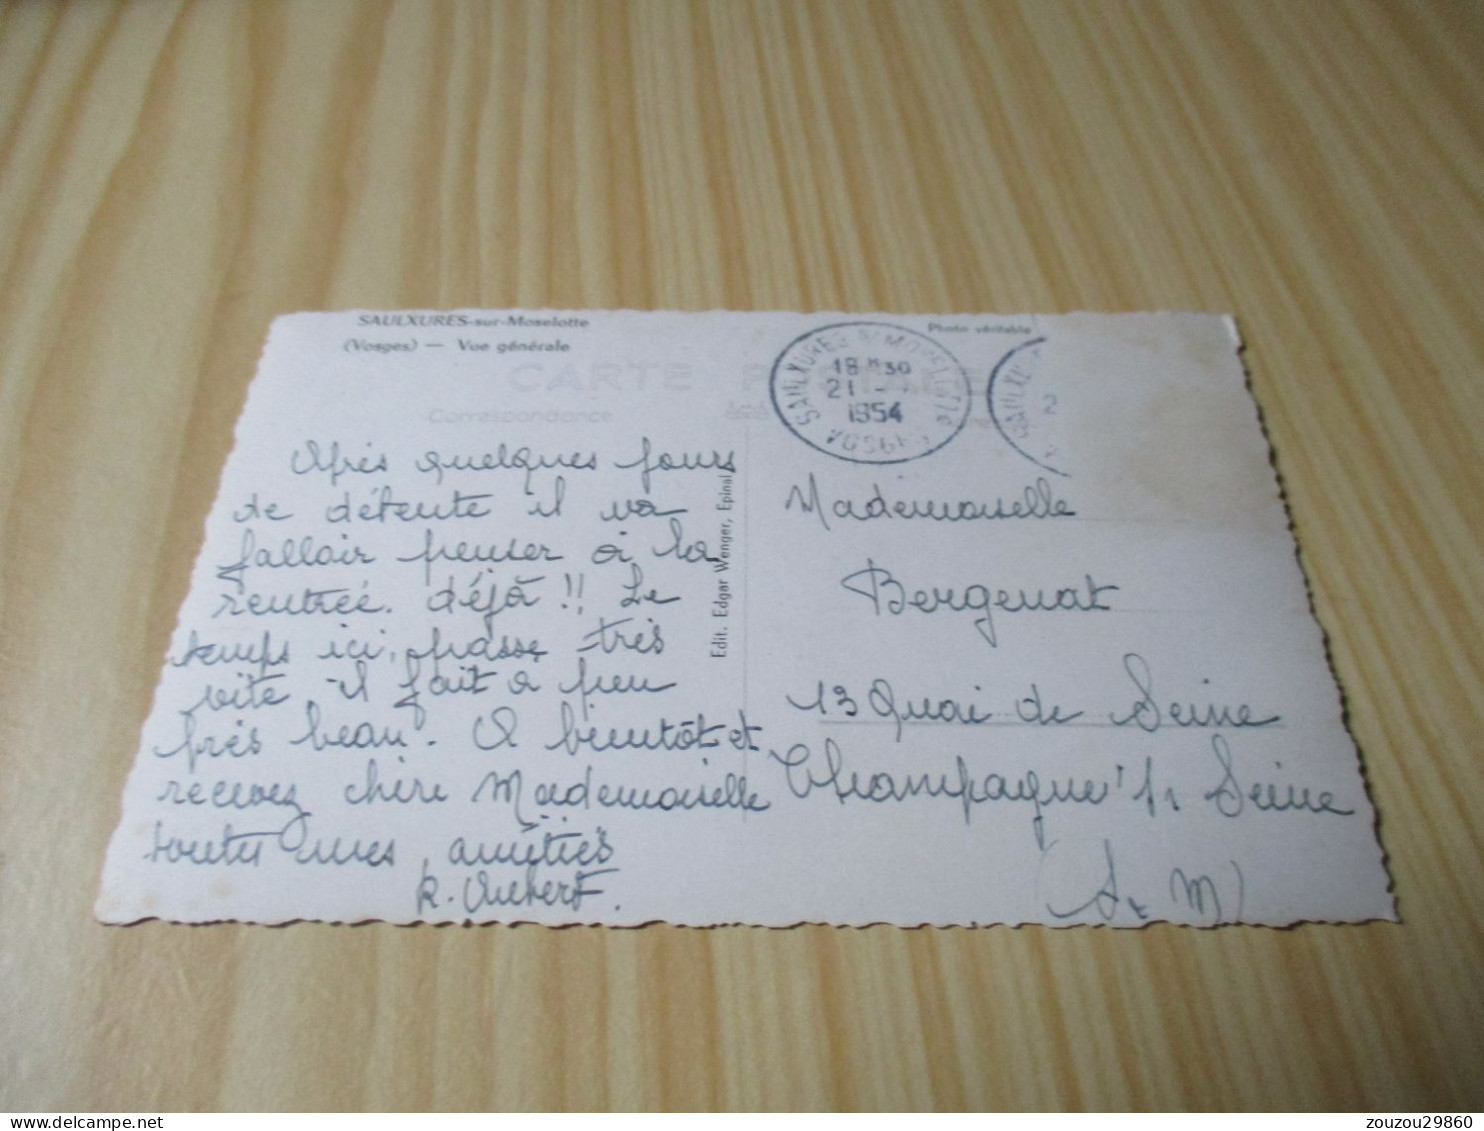 SAULXURES-sur-Moselotte
(Vosges) — Vue générale
Photo véritable
CARTE POSTALE
Correspondance
SAULXURES S/ MOSELOTTE
18 H 30
21 -
1954
VOSGES
SAULXURES
2
Après quelques jours
de détente il va
falloir penser à la
rentrée. déjà !! Le
temps ici, passe très
vite il fait à peu
près beau. A bientôt et
recevez chère Mademoiselle
toutes mes amitiés
R. Aubert.
Edit. Edgar Wenger, Epinal
Mademoiselle
Bergenat
13 Quai de Seine
Champagne s/ Seine
(S. et M)
zouzou29860